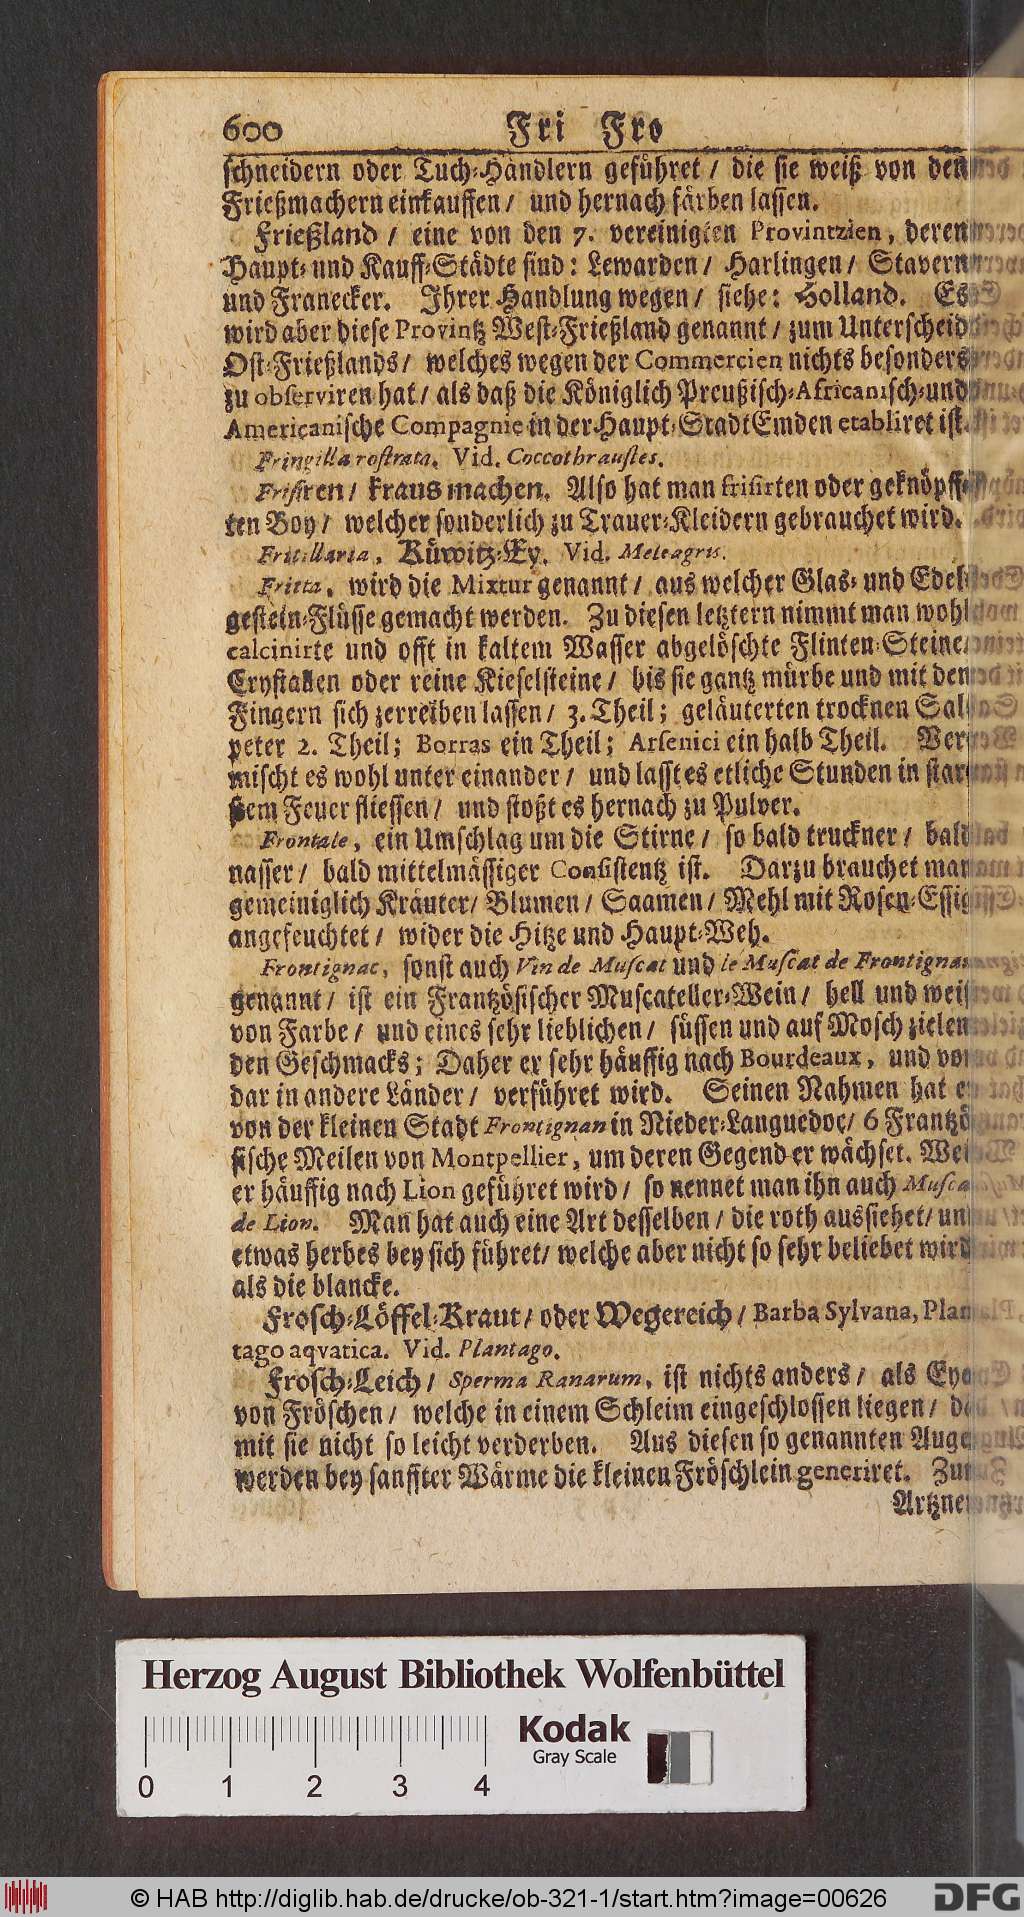 600 Fri Fro
schneidern oder Tuch-Händlern geführet / die sie weiß von den
Frießmachern einkauffen / und hernach färben lassen.
Frießland / eine von den 7. vereinigten Provintzien, deren
Haupt- und Kauff-Städte sind: Lewarden / Harlingen / Stavern
und Franecker. Ihrer Handlung wegen / siehe: Holland. Es
wird aber diese Provintz West-Frießland genannt / zum Unterscheid
Ost-Frießlands / welches wegen der Commercien nichts besonders
zu observiren hat / als daß die Königlich Preußisch-Africanisch-und
Americanische Compagnie in der Haupt-Stadt Emden etabliret ist.
Fringilla rostrata. Vid. Coccothraustes.
Frisiren / kraus machen. Also hat man frisirten oder geknöpff-
ten Boy / welcher sonderlich zu Trauer-Kleidern gebrauchet wird.
Fritillaria, Küwitz-Ey. Vid. Meleagris.
Fritta, wird die Mixtur genannt / aus welcher Glas- und Edel-
gestein-Flüsse gemacht werden. Zu diesen letztern nimmt man wohl
calcinirte und offt in kaltem Wasser abgelöschte Flinten-Steine,
Crystallen oder reine Kieselsteine / bis sie gantz mürbe und mit den
Fingern sich zerreiben lassen / 3. Theil; geläuterten trocknen Sal-
peter 2. Theil; Borras ein Theil; Arsenici ein halb Theil. Ver-
mischt es wohl unter einander / und lasst es etliche Stunden in star-
kem Feuer fliessen / und stoßt es hernach zu Pulver.
Frontale, ein Umschlag um die Stirne / so bald truckner / bald
nasser / bald mittelmässiger Consistentz ist. Darzu brauchet man
gemeiniglich Kräuter / Blumen / Saamen / Mehl mit Rosen-Essig
angefeuchtet / wider die Hitze und Haupt-Weh.
Frontignac, sonst auch Vin de Muscat und le Muscat de Frontignan
genannt / ist ein Frantzösischer Muscateller-Wein / hell und weiß
von Farbe / und eines sehr lieblichen / süssen und auf Mosch zielen-
den Geschmacks; Daher er sehr häuffig nach Bourdeaux, und von
dar in andere Länder / verführet wird. Seinen Nahmen hat er
von der kleinen Stadt Frontignan in Nieder-Languedoc / 6 Frantzö-
sische Meilen von Montpellier, um deren Gegend er wächset. Weil
er häuffig nach Lion geführet wird / so nennet man ihn auch Muscat
de Lion. Man hat auch eine Art desselben / die roth aussiehet / und
etwas herbes bey sich führet / welche aber nicht so sehr beliebet wird
als die blancke.
Frosch-Löffel-Kraut / oder Wegereich / Barba Sylvana, Plan-
tago aqvatica. Vid. Plantago.
Frosch-Leich / Sperma Ranarum, ist nichts anders / als Eyer
von Fröschen / welche in einem Schleim eingeschlossen liegen / da-
mit sie nicht so leicht verderben. Aus diesen so genannten Augen
werden bey sanffter Wärme die kleinen Fröschlein generiret. Zur
Artzney
Herzog August Bibliothek Wolfenbüttel
Kodak
Gray Scale
0 1 2 3 4
© HAB http://diglib.hab.de/drucke/ob-321-1/start.htm?image=00626
DFG